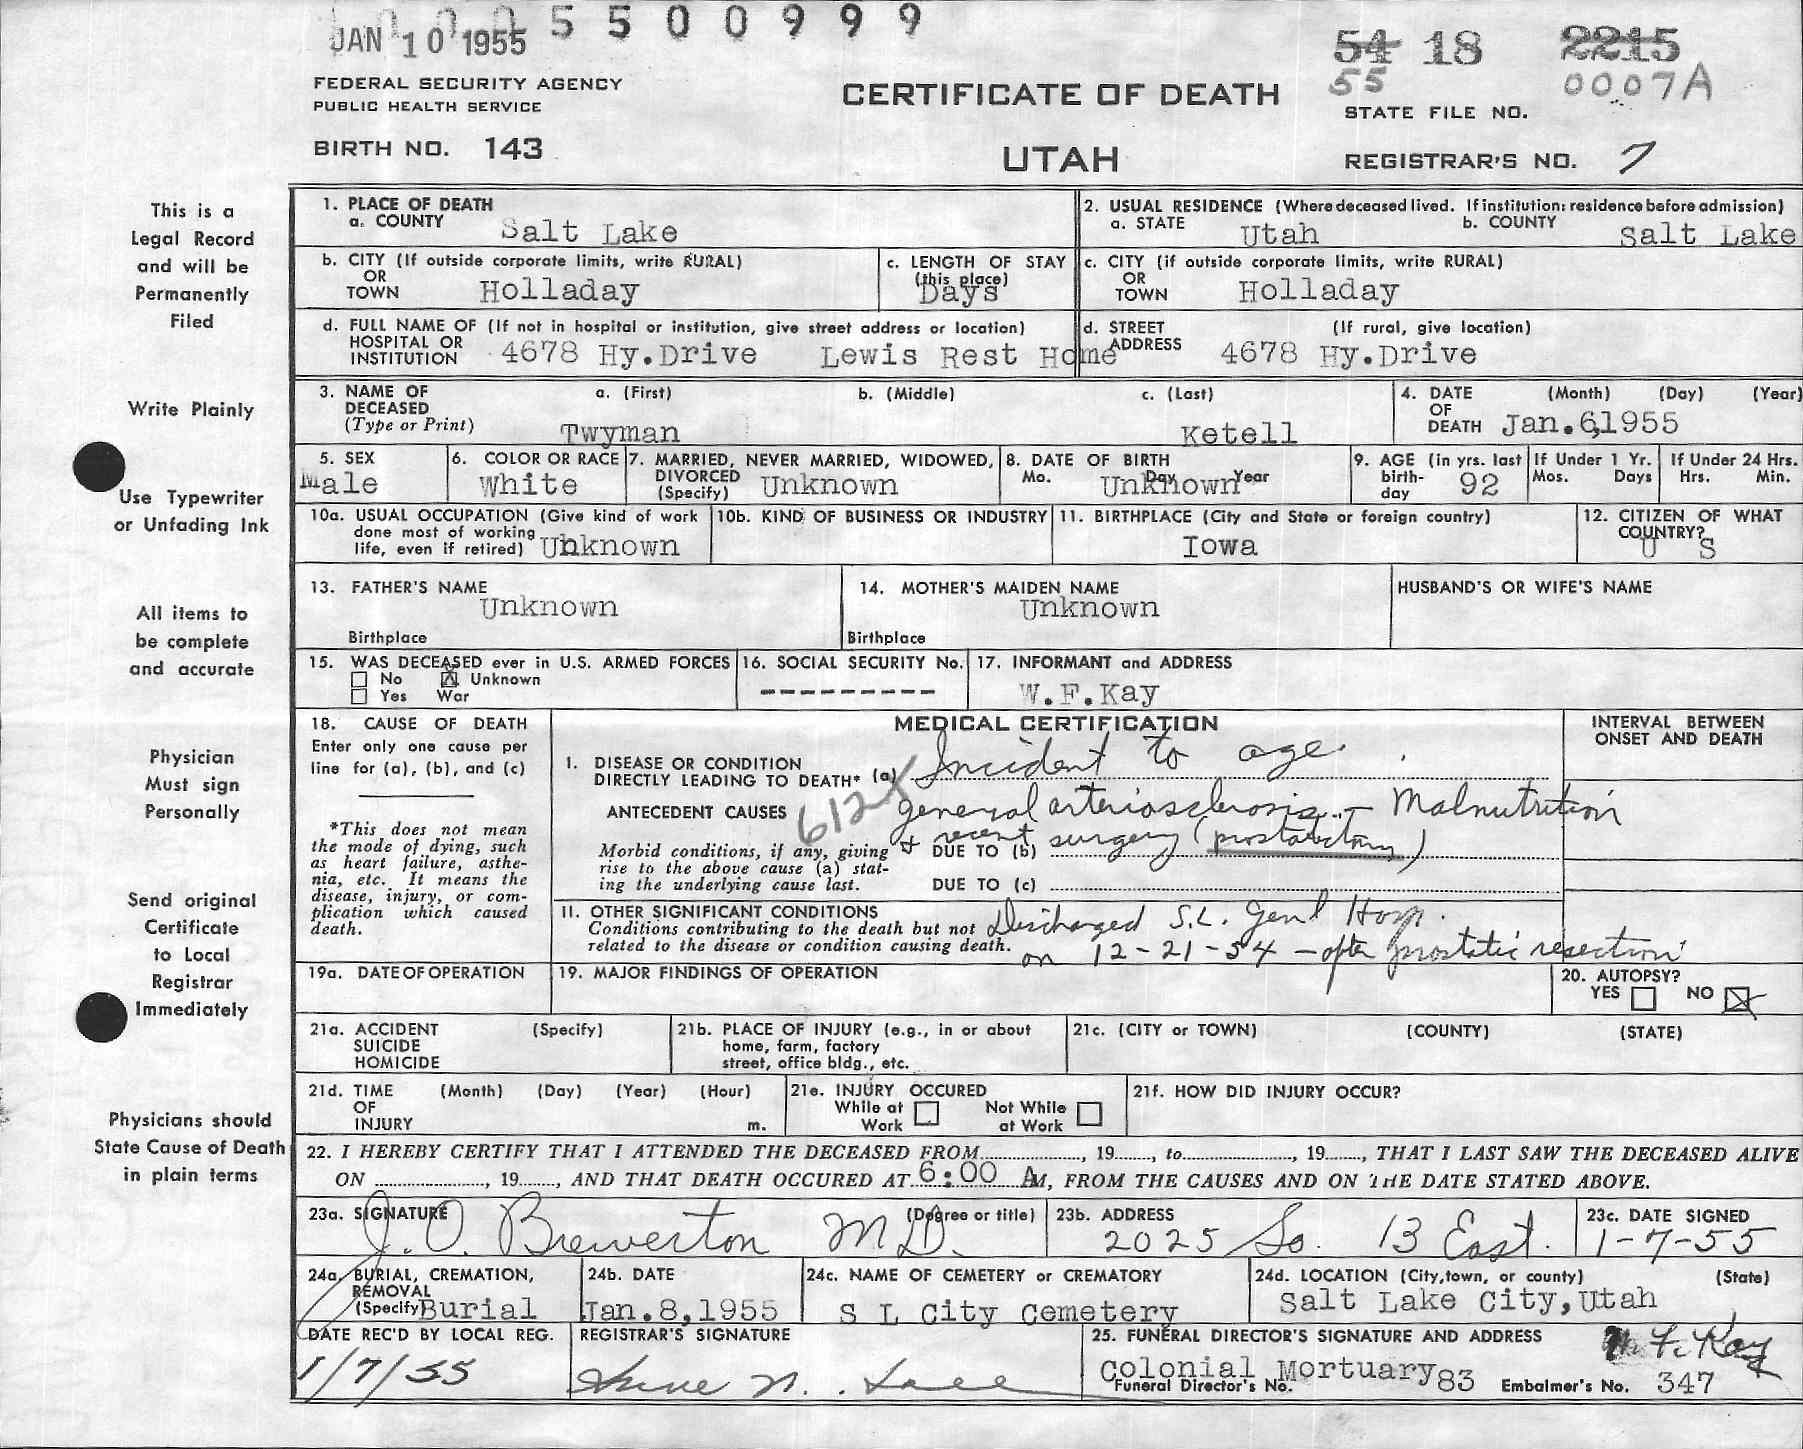 JAN 10 1955 5 5 0 0 9 9 9
54 18 2215
55 0007A
FEDERAL SECURITY AGENCY
PUBLIC HEALTH SERVICE
CERTIFICATE OF DEATH
STATE FILE NO.
BIRTH NO. 143
UTAH
REGISTRAR'S NO. 7
This is a
Legal Record
and will be
Permanently
Filed
Write Plainly
Use Typewriter
or Unfading Ink
All items to
be complete
and accurate
Physician
Must sign
Personally
Send original
Certificate
to Local
Registrar
Immediately
Physicians should
State Cause of Death
in plain terms
1. PLACE OF DEATH
a. COUNTY Salt Lake
2. USUAL RESIDENCE (Where deceased lived. If institution: residence before admission)
a. STATE Utah b. COUNTY Salt Lake
b. CITY (If outside corporate limits, write RURAL)
OR
TOWN Holladay
c. LENGTH OF STAY
(this place)
Days
c. CITY (if outside corporate limits, write RURAL)
OR
TOWN Holladay
d. FULL NAME OF (If not in hospital or institution, give street address or location)
HOSPITAL OR
INSTITUTION 4678 Hy.Drive Lewis Rest Home
d. STREET (If rural, give location)
ADDRESS 4678 Hy.Drive
3. NAME OF a. (First) b. (Middle) c. (Last)
DECEASED
(Type or Print) Twyman Ketell
4. DATE (Month) (Day) (Year)
OF
DEATH Jan.6,1955
5. SEX
Male
6. COLOR OR RACE
White
7. MARRIED, NEVER MARRIED, WIDOWED,
DIVORCED
(Specify) Unknown
8. DATE OF BIRTH
Mo. Day Year
Unknown
9. AGE (in yrs. last
birth-
day 92
If Under 1 Yr.
Mos. Days
If Under 24 Hrs.
Hrs. Min.
10a. USUAL OCCUPATION (Give kind of work
done most of working
life, even if retired) Unknown
10b. KIND OF BUSINESS OR INDUSTRY
11. BIRTHPLACE (City and State or foreign country)
Iowa
12. CITIZEN OF WHAT
COUNTRY?
U S
13. FATHER'S NAME
Unknown
Birthplace
14. MOTHER'S MAIDEN NAME
Unknown
Birthplace
HUSBAND'S OR WIFE'S NAME
15. WAS DECEASED ever in U.S. ARMED FORCES
No X Unknown
Yes War
16. SOCIAL SECURITY No.
----------
17. INFORMANT and ADDRESS
W.F.Kay
18. CAUSE OF DEATH
Enter only one cause per
line for (a), (b), and (c)
*This does not mean
the mode of dying, such
as heart failure, asthe-
nia, etc. It means the
disease, injury, or com-
plication which caused
death.
MEDICAL CERTIFICATION
INTERVAL BETWEEN
ONSET AND DEATH
1. DISEASE OR CONDITION
DIRECTLY LEADING TO DEATH* (a) Incident to age.
612X
ANTECEDENT CAUSES general arteriosclerosis - Malnutrition
Morbid conditions, if any, giving
rise to the above cause (a) stat-
ing the underlying cause last.
DUE TO (b) + recent surgery (prostatectomy)
DUE TO (c)
11. OTHER SIGNIFICANT CONDITIONS
Conditions contributing to the death but not
related to the disease or condition causing death.
Discharged S.L. Genl Hosp.
on 12-21-54 - after prostatic resection
19a. DATE OF OPERATION
19. MAJOR FINDINGS OF OPERATION
20. AUTOPSY?
YES NO X
21a. ACCIDENT (Specify)
SUICIDE
HOMICIDE
21b. PLACE OF INJURY (e.g., in or about
home, farm, factory
street, office bldg., etc.
21c. (CITY or TOWN) (COUNTY) (STATE)
21d. TIME (Month) (Day) (Year) (Hour)
OF
INJURY m.
21e. INJURY OCCURED
While at Work
Not While at Work
21f. HOW DID INJURY OCCUR?
22. I HEREBY CERTIFY THAT I ATTENDED THE DECEASED FROM , 19 , to , 19 , THAT I LAST SAW THE DECEASED ALIVE
ON , 19 , AND THAT DEATH OCCURED AT 6:00 AM, FROM THE CAUSES AND ON THE DATE STATED ABOVE.
23a. SIGNATURE (Degree or title)
J. O. Brewerton M.D.
23b. ADDRESS
2025 So. 13 East.
23c. DATE SIGNED
1-7-55
24a. BURIAL, CREMATION,
REMOVAL
(Specify) Burial
24b. DATE
Jan.8,1955
24c. NAME OF CEMETERY or CREMATORY
S L City Cemetery
24d. LOCATION (City, town, or county) (State)
Salt Lake City,Utah
DATE REC'D BY LOCAL REG.
1/7/55
REGISTRAR'S SIGNATURE
25. FUNERAL DIRECTOR'S SIGNATURE AND ADDRESS
Kay
Colonial Mortuary
Funeral Director's No. 83 Embalmer's No. 347